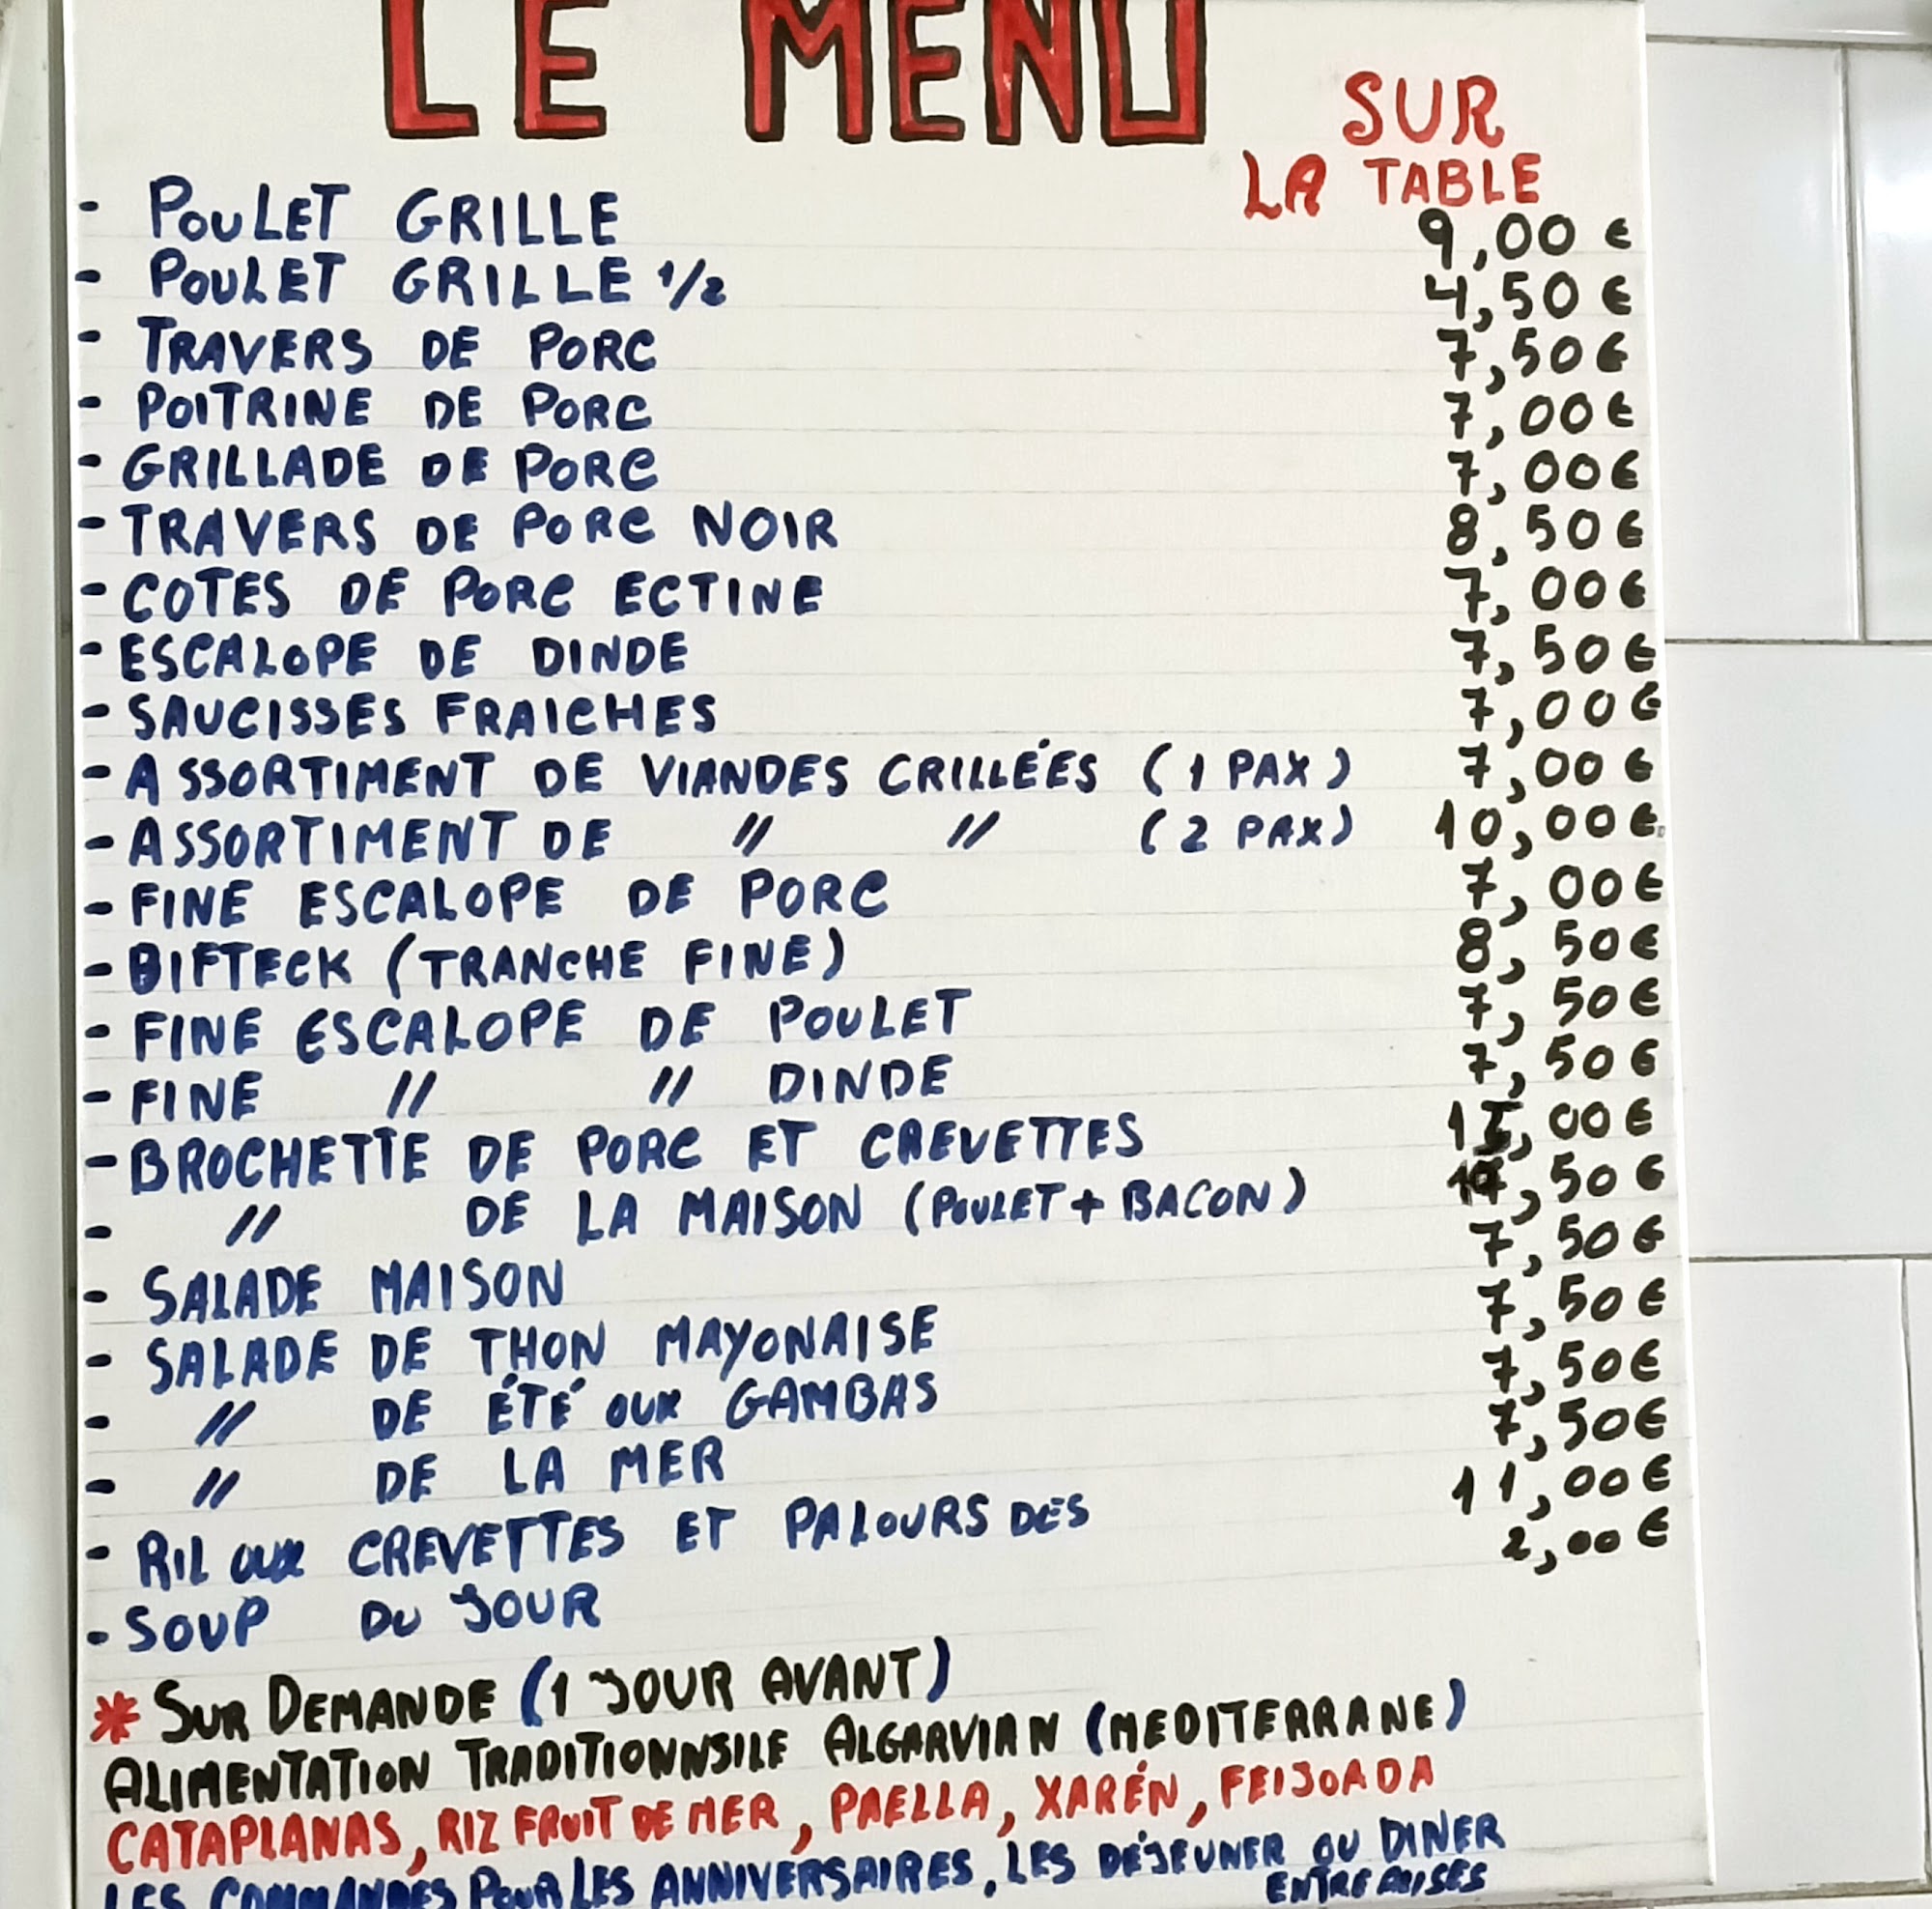 LE MENU
SUR
LA TABLE
- POULET GRILLE 9,00 €
- POULET GRILLE 1/2 4,50 €
- TRAVERS DE PORC 7,50 €
- POITRINE DE PORC 7,00 €
- GRILLADE DE PORC 7,00 €
- TRAVERS DE PORC NOIR 8,50 €
- COTES DE PORC ECTINE 7,00 €
- ESCALOPE DE DINDE 7,50 €
- SAUCISSES FRAICHES 7,00 €
- ASSORTIMENT DE VIANDES CRILLÉES (1 PAX) 7,00 €
- ASSORTIMENT DE // // (2 PAX) 10,00 €
- FINE ESCALOPE DE PORC 7,00 €
- BIFTECK (TRANCHE FINE) 8,50 €
- FINE ESCALOPE DE POULET 7,50 €
- FINE // // DINDE 7,50 €
- BROCHETTE DE PORC ET CREVETTES
- // DE LA MAISON (POULET + BACON)
- SALADE MAISON 7,50 €
- SALADE DE THON MAYONAISE 7,50 €
- // DE ÉTÉ aux GAMBAS 7,50 €
- // DE LA MER 7,50 €
- RIL aux CREVETTES ET PALOURS DES 11,00 €
- SOUP DU JOUR 2,00 €
* SUR DEMANDE (1 JOUR AVANT)
ALIMENTATION TRADITIONNSILE ALGARVIAN (MEDITERRANE)
CATAPLANAS, RIZ FRUIT DE MER, PAELLA, XARÉN, FEIJOADA
LES COMMANDES POUR LES ANNIVERSAIRES, LES DÉJEUNER OU DINER